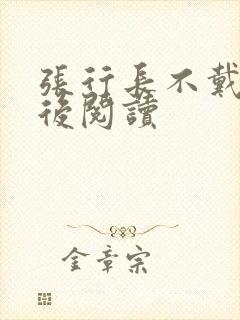 張行長不戴
後閱讀
金章宗